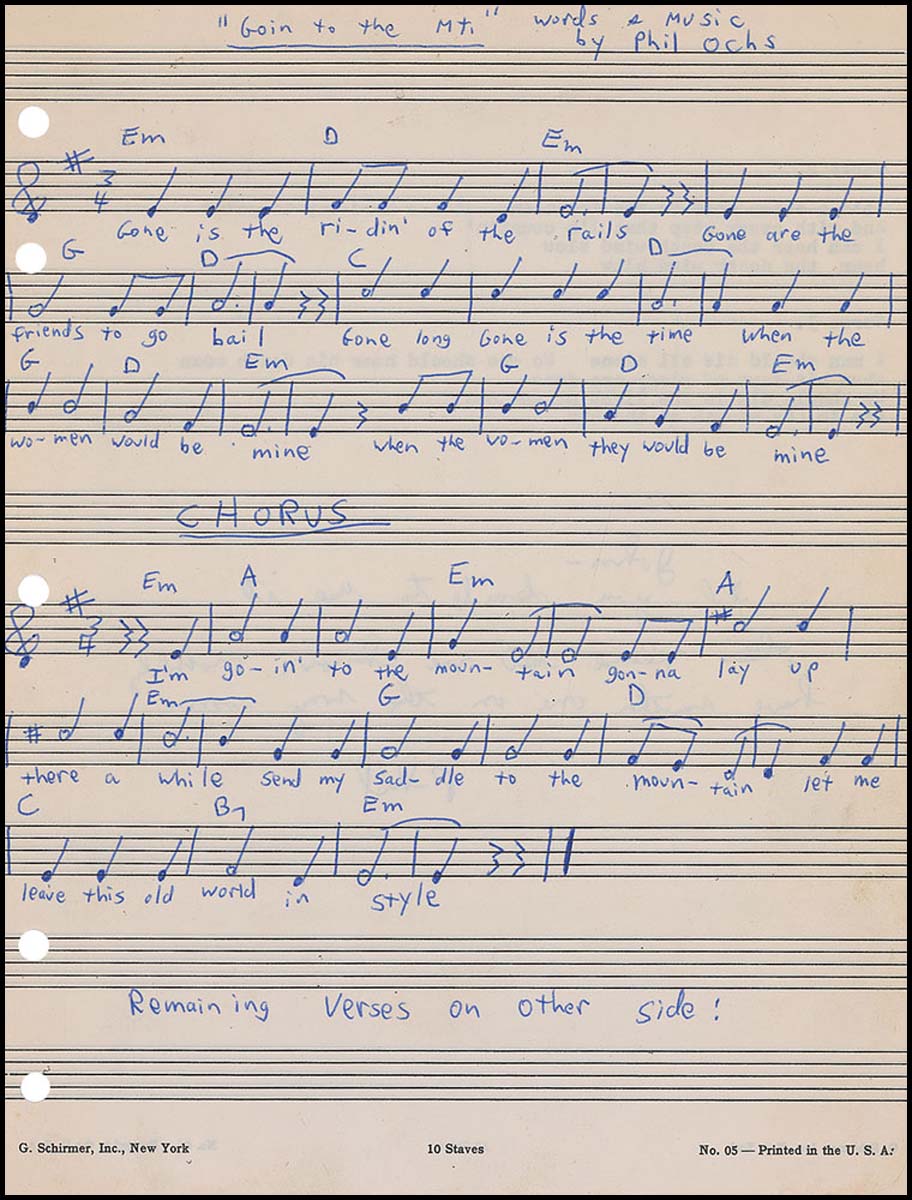 "Goin to the Mt." words & Music
by Phil Ochs
Em D Em
3
4
Gone is the ri-din' of the rails Gone are the
G D C D
friends to go bail Gone long Gone is the time when the
G D Em G D Em
wo-men would be mine when the wo-men they would be mine
CHORUS
Em A Em A
3
4
I'm go-in' to the moun-tain gon-na lay up
Em G D
there a while send my sad-dle to the moun-tain let me
C B7 Em
leave this old world in style
Remaining Verses on other side!
G. Schirmer, Inc., New York 10 Staves No. 05 — Printed in the U. S. A.